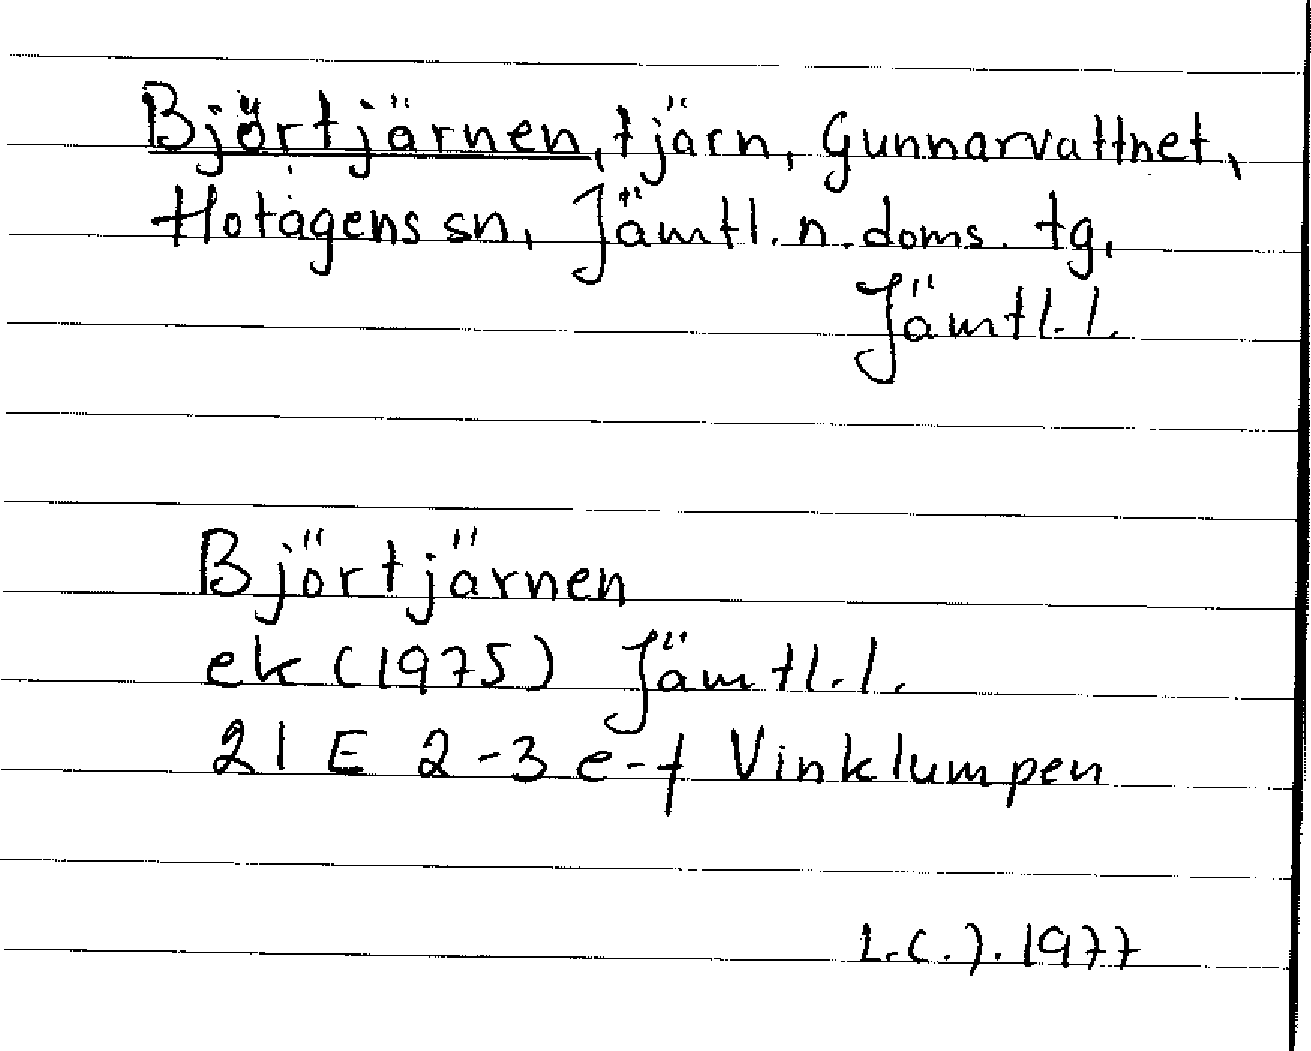 Björtjärnen, tjärn, Gunnarvattnet,
Hotagens sn, Jämtl. n. doms. tg,
Jämtl. l.
Björtjärnen
ek (1975) Jämtl. l.
21 E 2-3 e-f Vinklumpen
1977